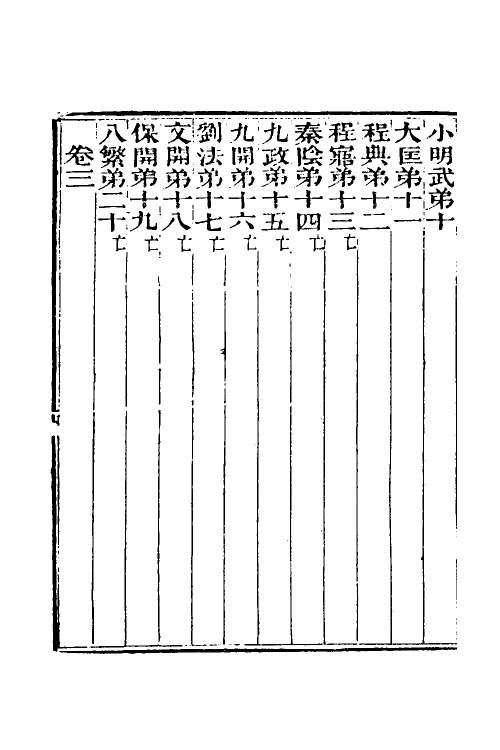 小明武弟十
大匡弟十一
程典弟十二
程寤弟十三亡
秦陰弟十四亡
九政弟十五亡
九開弟十六亡
劉法弟十七亡
文開弟十八亡
保開弟十九亡
八繁弟二十亡
卷三